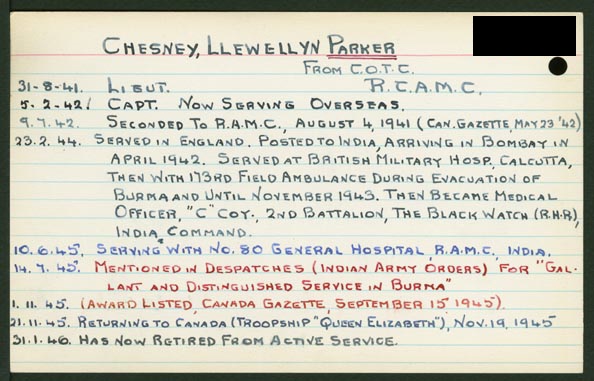 CHESNEY, LLEWELLYN PARKER
FROM C.O.T.C.
31-8-41. LIEUT. R.C.A.M.C.
5.2-42. CAPT. NOW SERVING OVERSEAS.
9.7.42. SECONDED TO R.A.M.C., AUGUST 4, 1941 (CAN. GAZETTE, MAY 23 '42)
23.2.44. SERVED IN ENGLAND. POSTED TO INDIA, ARRIVING IN BOMBAY IN
APRIL 1942. SERVED AT BRITISH MILITARY HOSP., CALCUTTA,
THEN WITH 173RD FIELD AMBULANCE DURING EVACUATION OF
BURMA AND UNTIL NOVEMBER 1943. THEN BECAME MEDICAL
OFFICER, "C" COY., 2ND BATTALION, THE BLACK WATCH (R.H.R),
INDIA COMMAND.
10.6.45. SERVING WITH NO. 80 GENERAL HOSPITAL, R.A.M.C., INDIA.
14.7.45. MENTIONED IN DESPATCHES (INDIAN ARMY ORDERS) FOR "GAL-
LANT AND DISTINGUISHED SERVICE IN BURMA"
1.11.45. (AWARD LISTED, CANADA GAZETTE, SEPTEMBER 15 1945).
21.11.45. RETURNING TO CANADA (TROOPSHIP "QUEEN ELIZABETH"), NOV. 19, 1945
31.1.46. HAS NOW RETIRED FROM ACTIVE SERVICE.